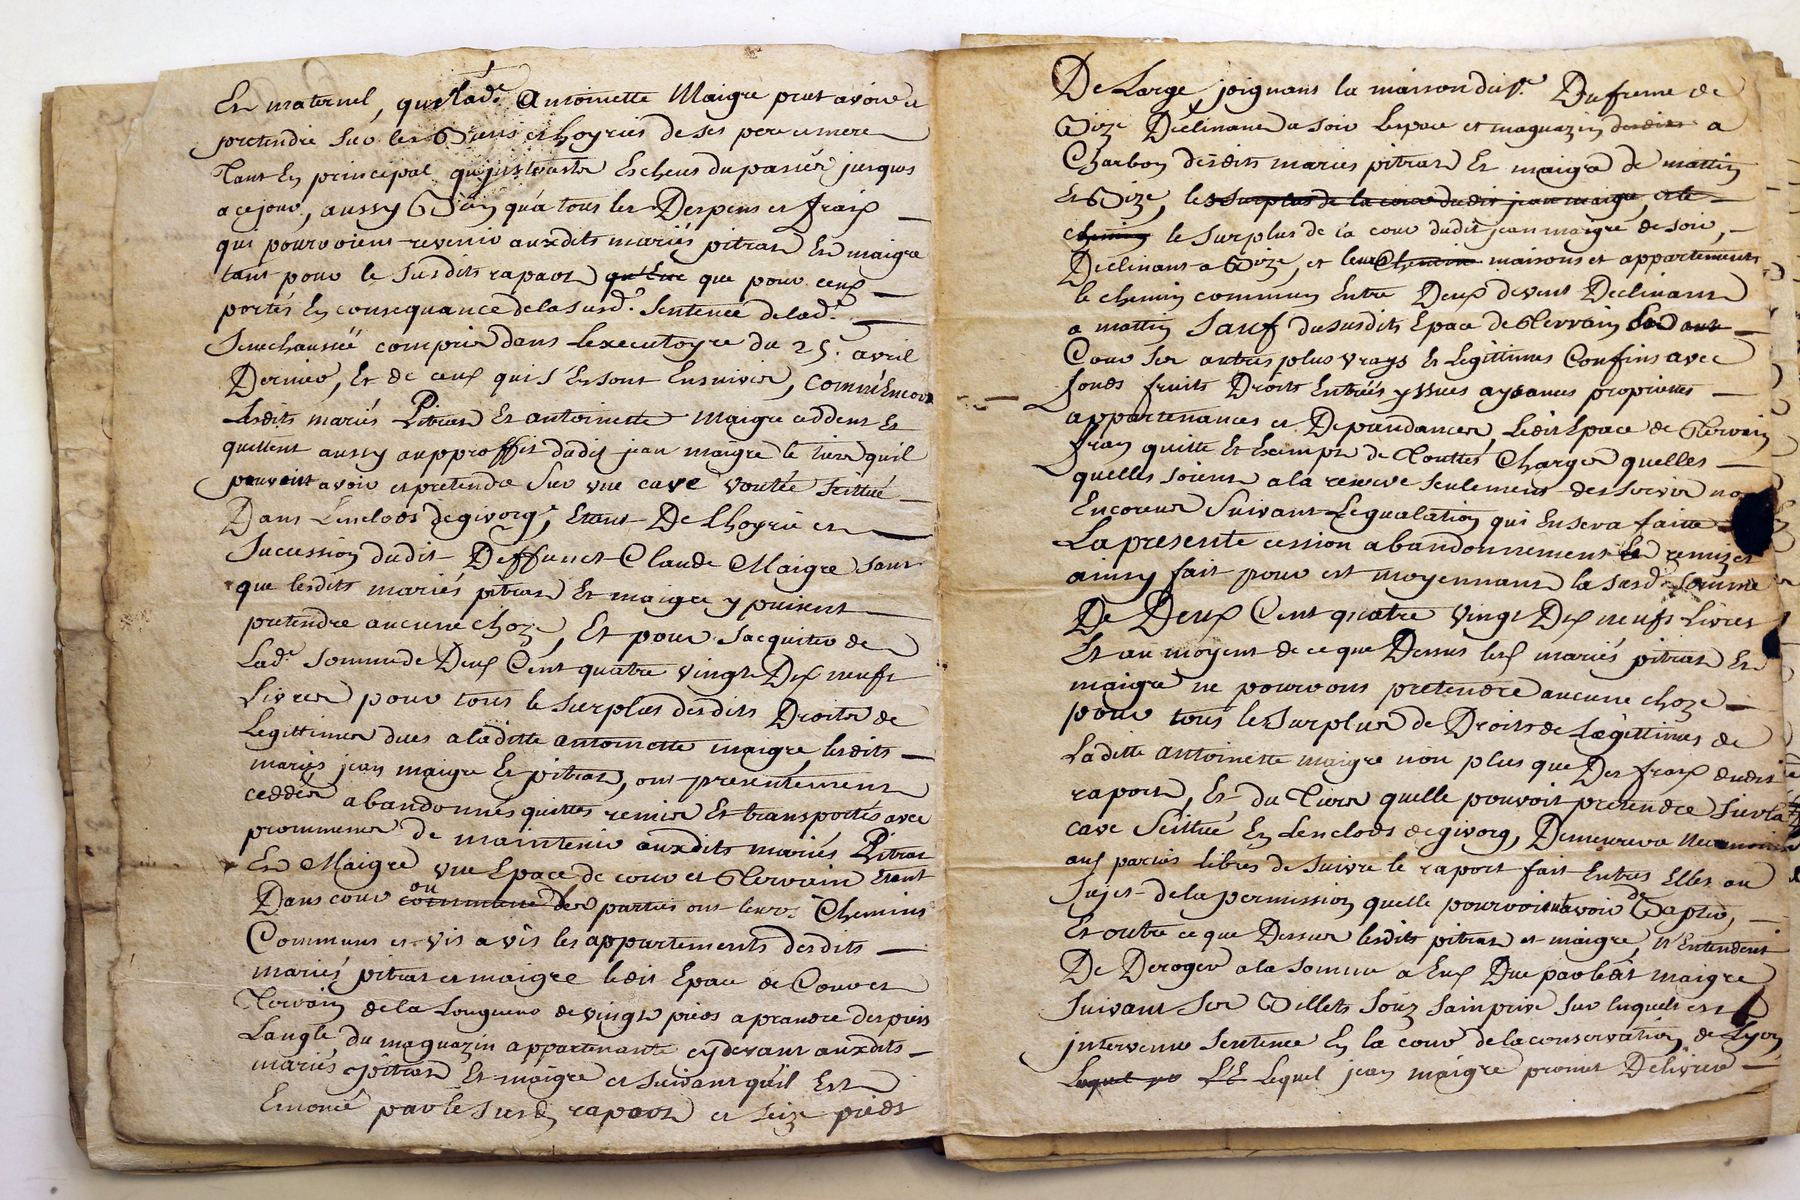 Et maternel, que lad.e Antoinette Maigre peut avoir et
pretendre sur les Biens et hoyries de ses pere et mere
Tant En principal qu'jnterests Escheus du passé jusques
a ce jour, aussy Bien qu'a tous les Despens et fraix
qui pourroient revenir auxdits mariés pitrat Et maigre
tant pour le susdits raport qu'Euc que pour ceux
portés En consequance de la susd.e Sentence de lad.e
Senechaussée compris dans Lexecutoyre du 25.e avril
Dernier, Et de ceux qui s'En sont Ensuivis, comm'Encore
Lesdits mariés Pitrat Et antoinette Maigre ceddent Et
quittent aussy au proffit dudit jean maigre le tiers qu'il
pouvoint avoir et pretendre Sur vne cave voutée scittué
Dans Lenclods de givorg, Etant De L'hoyrie et
Sucession dudit Deffunct Claude Maigre sans
que lesdits mariés pitrat Et maigre y puissent
pretendre aucune choze, Et pour sacquitter de
Lad.e Somme de Deux Cent quatre vingt Dix neufs
Livres pour tous le surplus desdits Droits de
Legittimes dues a laditte antoinette maigre, lesdits
mariés jean maigre Et pitrat, ont presentement
ceddés abandonnés quittés remis Et transportés avec
prommesse de maintenir auxdits mariés Pitrat
Et Maigre vne Espace de cour et Terrain Etant
Dans cour ou commune des parties ont leurs Chemins
Communs et vis a vis les appartements desdits
mariés pitrat et maigre ledit Epace de Cour et
Terrain de la Longueur de vingt pieds a prandre despuis
Langle du maguazin appartenants cydevant auxdits
mariés pitrat Et maigre et suivant qu'il Est
Enoncé par le susd. raport et seize pieds
De Large joignans la maison du s.r Dufrene de
Bize Declinant a soir Lespace et maguazin desdits a
Charbon desdits mariés pitrat Et maigre de mattin
Et Bize, le surplus de la cour dudit jean maigre, et le
chemin le surplus de la cour dudit jean maigre de soir,
Declinant a Bize, et leurs Chemin maisons et appartements
le chemin commun Entre Deux de vent Declinant
a mattin Sauf du susdits Epace de Terrain
Cour ses autres plus vrays Et Legittimes Confins avec
fonds fruits Droits Entrées yssues aysances proprietés
appartenances et Depandances, Ledit Epace de Terrain
fran quitte Et Exempt de Touttes Charges quelles
quelles soient a la reserve seulement des servis no
Encourus Suivant Legualation qui En sera faitte
La presente cession abandonnement et remize
ainsy fait pour et moyennant la susd.e somme
De Deux Cent quatre vingt Dix neufs Livres
Et au moyent de ce que Dessus lesd mariés pitrat Et
maigre ne pourront pretendre aucune choze
pour tous les surplus de Droits de Legittimes de
Laditte antoinette maigre non plus que Des fraix dudit
raport, Et du Tiers quelle pouvoit pretendre sur la
cave Scittué En Lenclods de givorg, Demeurera neanmoins
aux parties libres de suivre le raport fait Entres Elles au
sujet de la permission quelle pourroient avoir de Baptir,
Et outre ce que Dessus lesdits pitrat et maigre, n'Entendent
De Deroger a la somme a Eux Due par ledit maigre
suivant ses Billets souz sainprivé sur lesquels est
jntervenue Sentence En la cour de la conservation de Lyon
Lequel LE Lequel jean maigre promet Delivrer